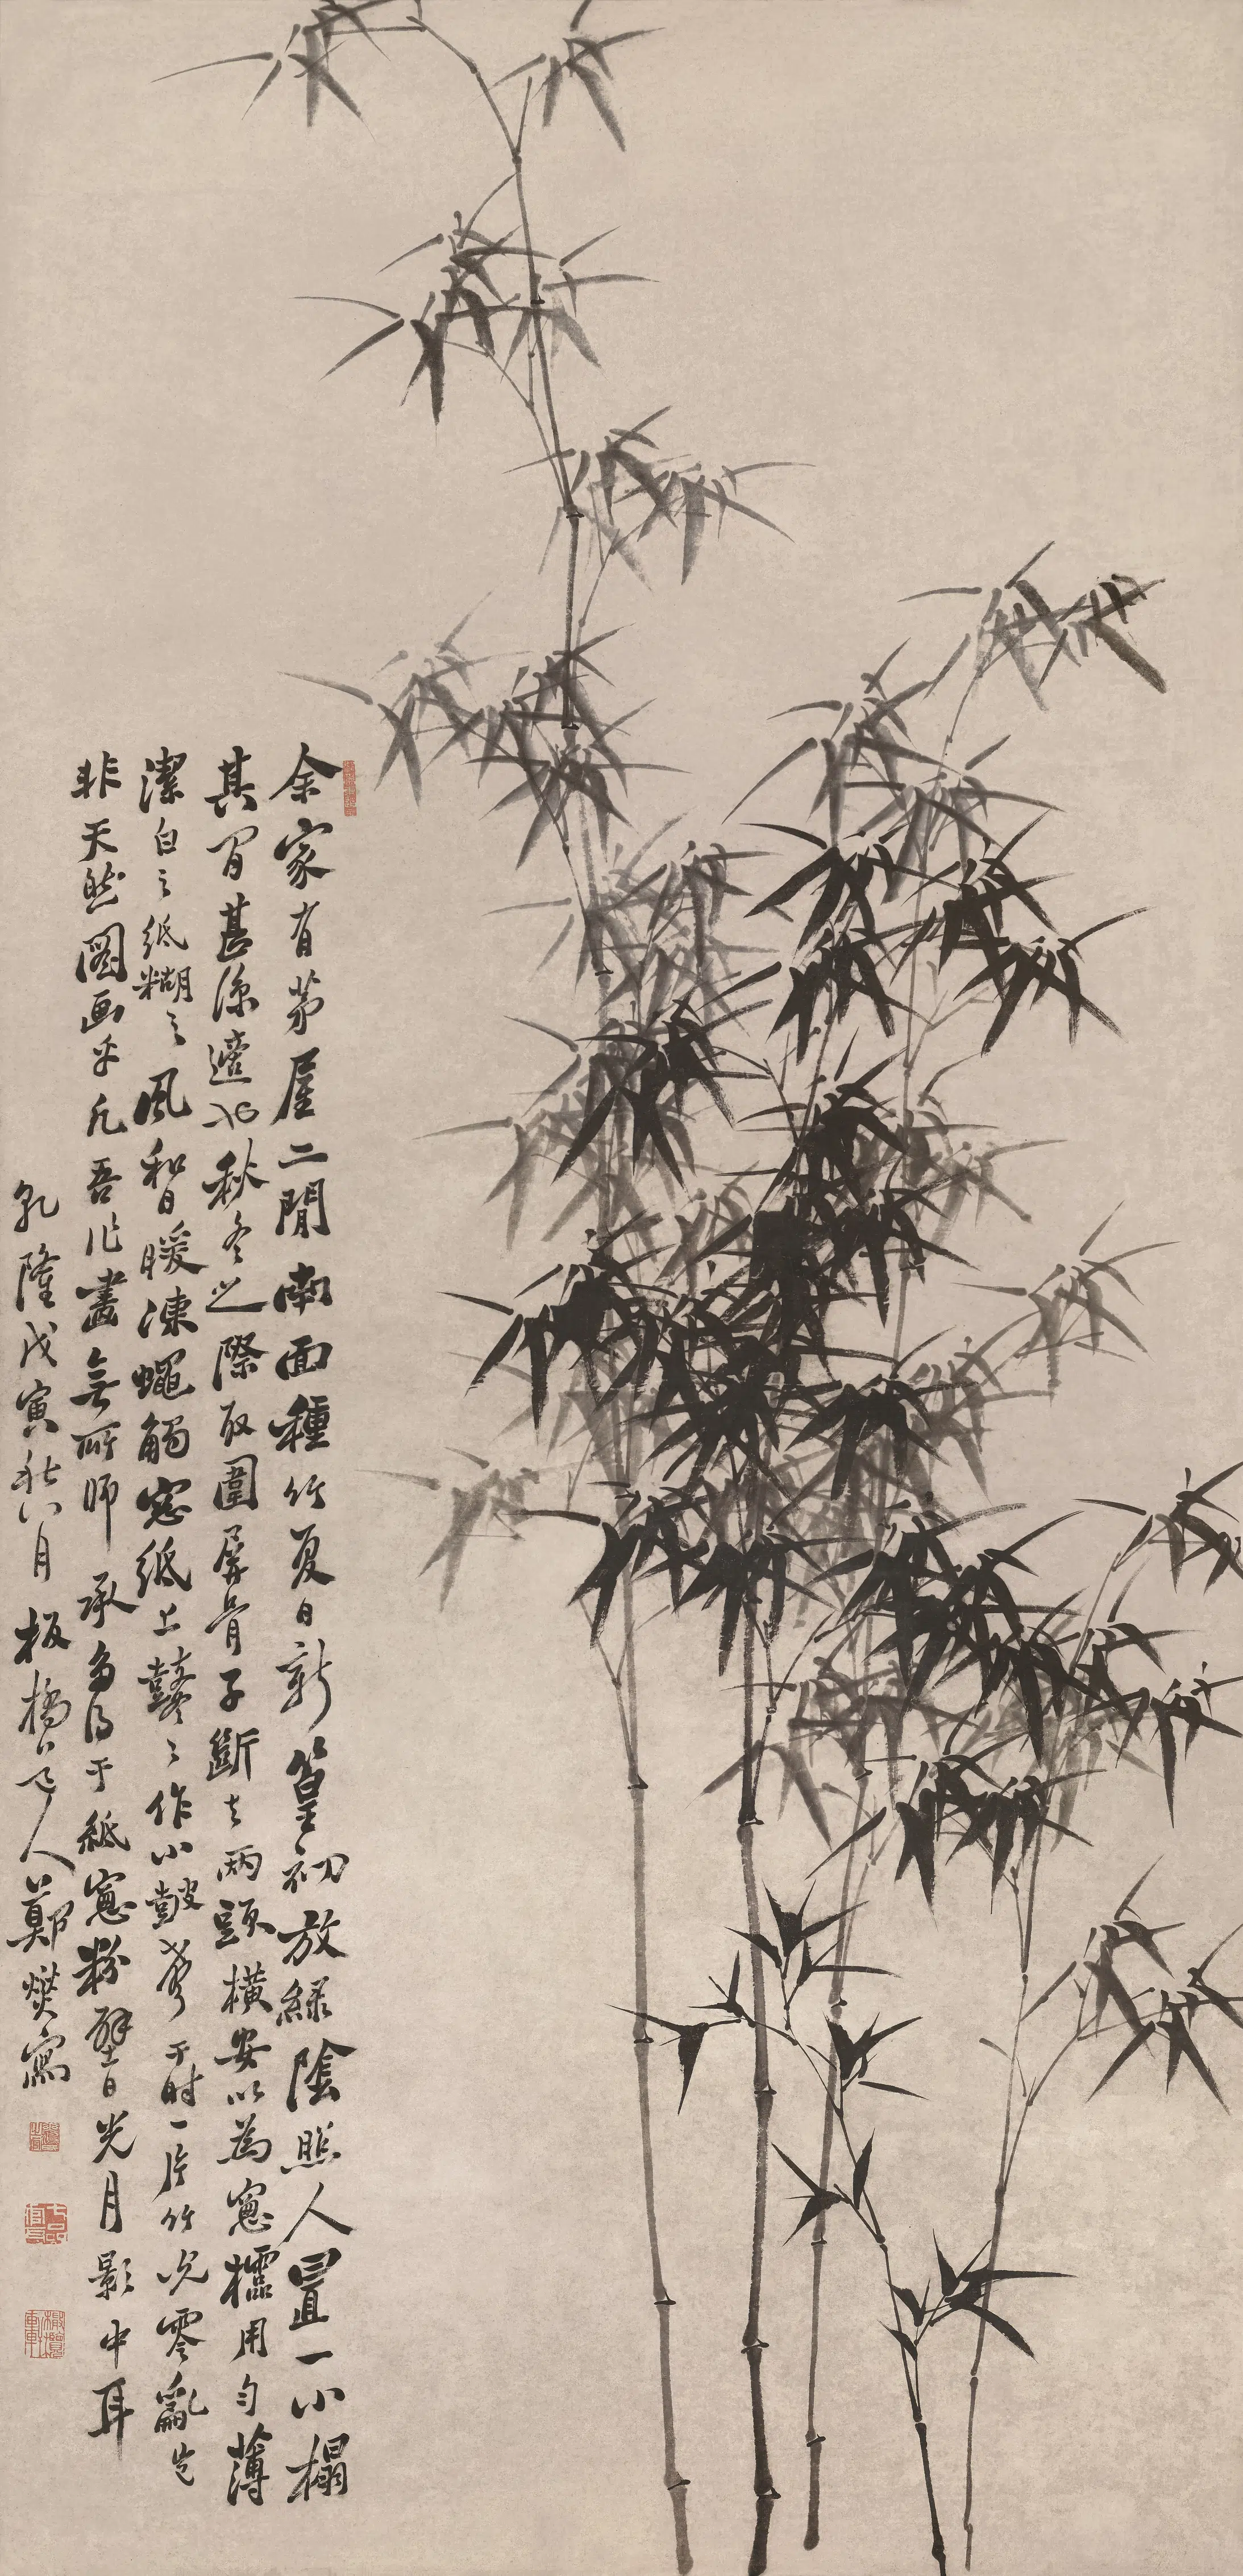 余家有茅屋二間南面種竹夏日新篁初放綠陰照人置一小榻
其間甚涼適也秋冬之際取圍屏骨子斷去兩頭橫安以為窻欞用勻薄
潔白之紙糊之風和日暖凍蠅觸窻紙上鼕〻作小皷聲于時一片竹影零亂豈
非天然圖画乎凡吾作畫無所師承多得于紙窻粉壁日光月影中耳
乾隆戊寅秋八月板橋道人鄭燮寫